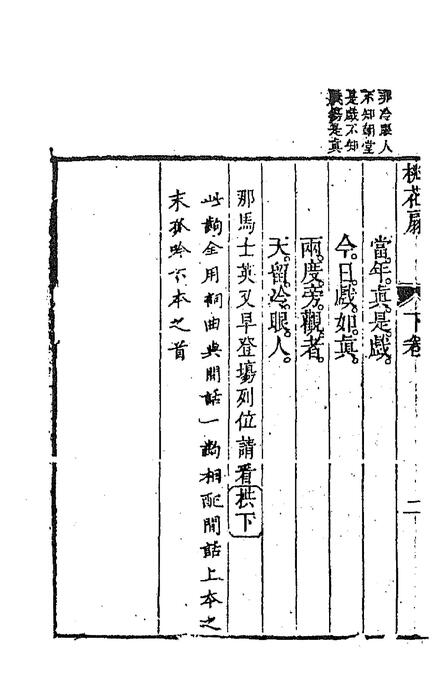 那冷眼人
不知朝堂
是戲不知
戲塲是真
桃花扇 下卷 二
當年真是戲。
今日戲如真。
兩度旁觀者。
天留冷眼人。
那馬士英又早登塲列位請看拱下
此齣全用詞曲與閒話一齣相配閒話上本之
末孤吟下本之首